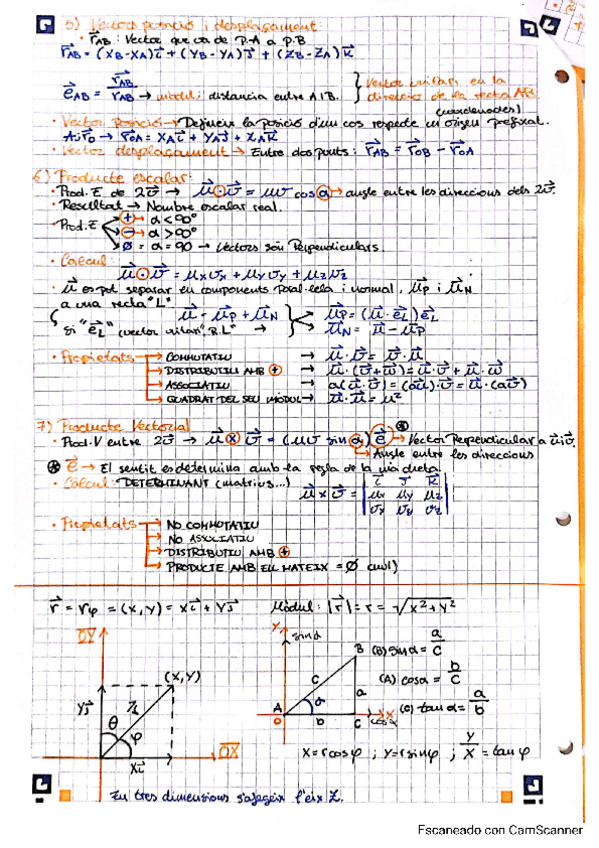 5) Vectors posició i desplaçament:
• r⃗AB: Vector que va de P.A a P.B
r⃗AB = (XB-XA)i⃗ + (YB-YA)j⃗ + (ZB-ZA)k⃗
e⃗AB = r⃗AB / rAB → mòdul: distancia entre A i B. } Vector unitari en la
direcció de la recta AB.
(coordenades)
• Vector Posició → Defineix la posició d'un cos respecte un origen prefixat.
r⃗OA = XAi⃗ + YAj⃗ + ZAk⃗
• Vector desplaçament → Entre dos punts: r⃗AB = r⃗OB - r⃗OA
6) Producte escalar:
• Prod. E de 2v⃗ → u⃗·v⃗ = uv cos α → angle entre les direccions dels 2v⃗.
• Resultat → Nombre escalar real.
• Prod. E
+ → α<90°
- → α>90°
Ø = α = 90 → Vectors són Perpendiculars.
• Càlcul:
u⃗·v⃗ = uxvx + uyvy + uzvz
• u⃗ es pot separar en components paral·lela i normal, u⃗P i u⃗N
a una recta "L"
u⃗ = u⃗P + u⃗N
u⃗P = (u⃗·e⃗L)e⃗L
Si "e⃗L" (vector unitari "R.L" →
u⃗N = u⃗ - u⃗P
• Propietats → COMMUTATIU → u⃗·v⃗ = v⃗·u⃗
→ DISTRIBUTIU AMB + → u⃗·(v⃗+w⃗) = u⃗·v⃗ + u⃗·w⃗
→ ASSOCIATIU → a(u⃗·v⃗) = (au⃗)·v⃗ = u⃗·(av⃗)
→ QUADRAT DEL SEU MÒDUL → u⃗·u⃗ = u²
7) Producte Vectorial
• Prod. V entre 2v⃗ → u⃗ × v⃗ = (uv sin α) e⃗ * → Vector Perpendicular a u⃗ i v⃗.
→ Angle entre les direccions
* e⃗ → El sentit es determina amb la regla de la mà dreta.
• Càlcul: DETERMINANT (matrius...)
u⃗ × v⃗ = | i⃗ j⃗ k⃗ |
| ux uy uz |
| vx vy vz |
• Propietats → NO COMMUTATIU
→ NO ASSOCIATIU
→ DISTRIBUTIU AMB +
→ PRODUCTE AMB ELL MATEIX = Ø (nul)
r⃗ = rφ = (x,y) = xi⃗ + yj⃗ Mòdul: |r⃗| = r = √x²+y²
OY
(x,y)
yj⃗
θ
φ
xi⃗
OX
Y
sin α
B
c
a
A
α
O
b
C
X
cos α
(B) sin α = a/c
(A) cos α = b/c
(C) tan α = a/b
x = r cos φ ; y = r sin φ ; y/x = tan φ
En tres dimensions s'afegeix l'eix Z.
Escaneado con CamScanner